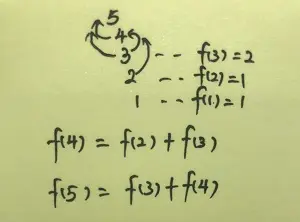 5
4
3 -- f(3)=2
2 -- f(2)=1
1 -- f(1)=1
f(4) = f(2) + f(3)
f(5) = f(3) + f(4)